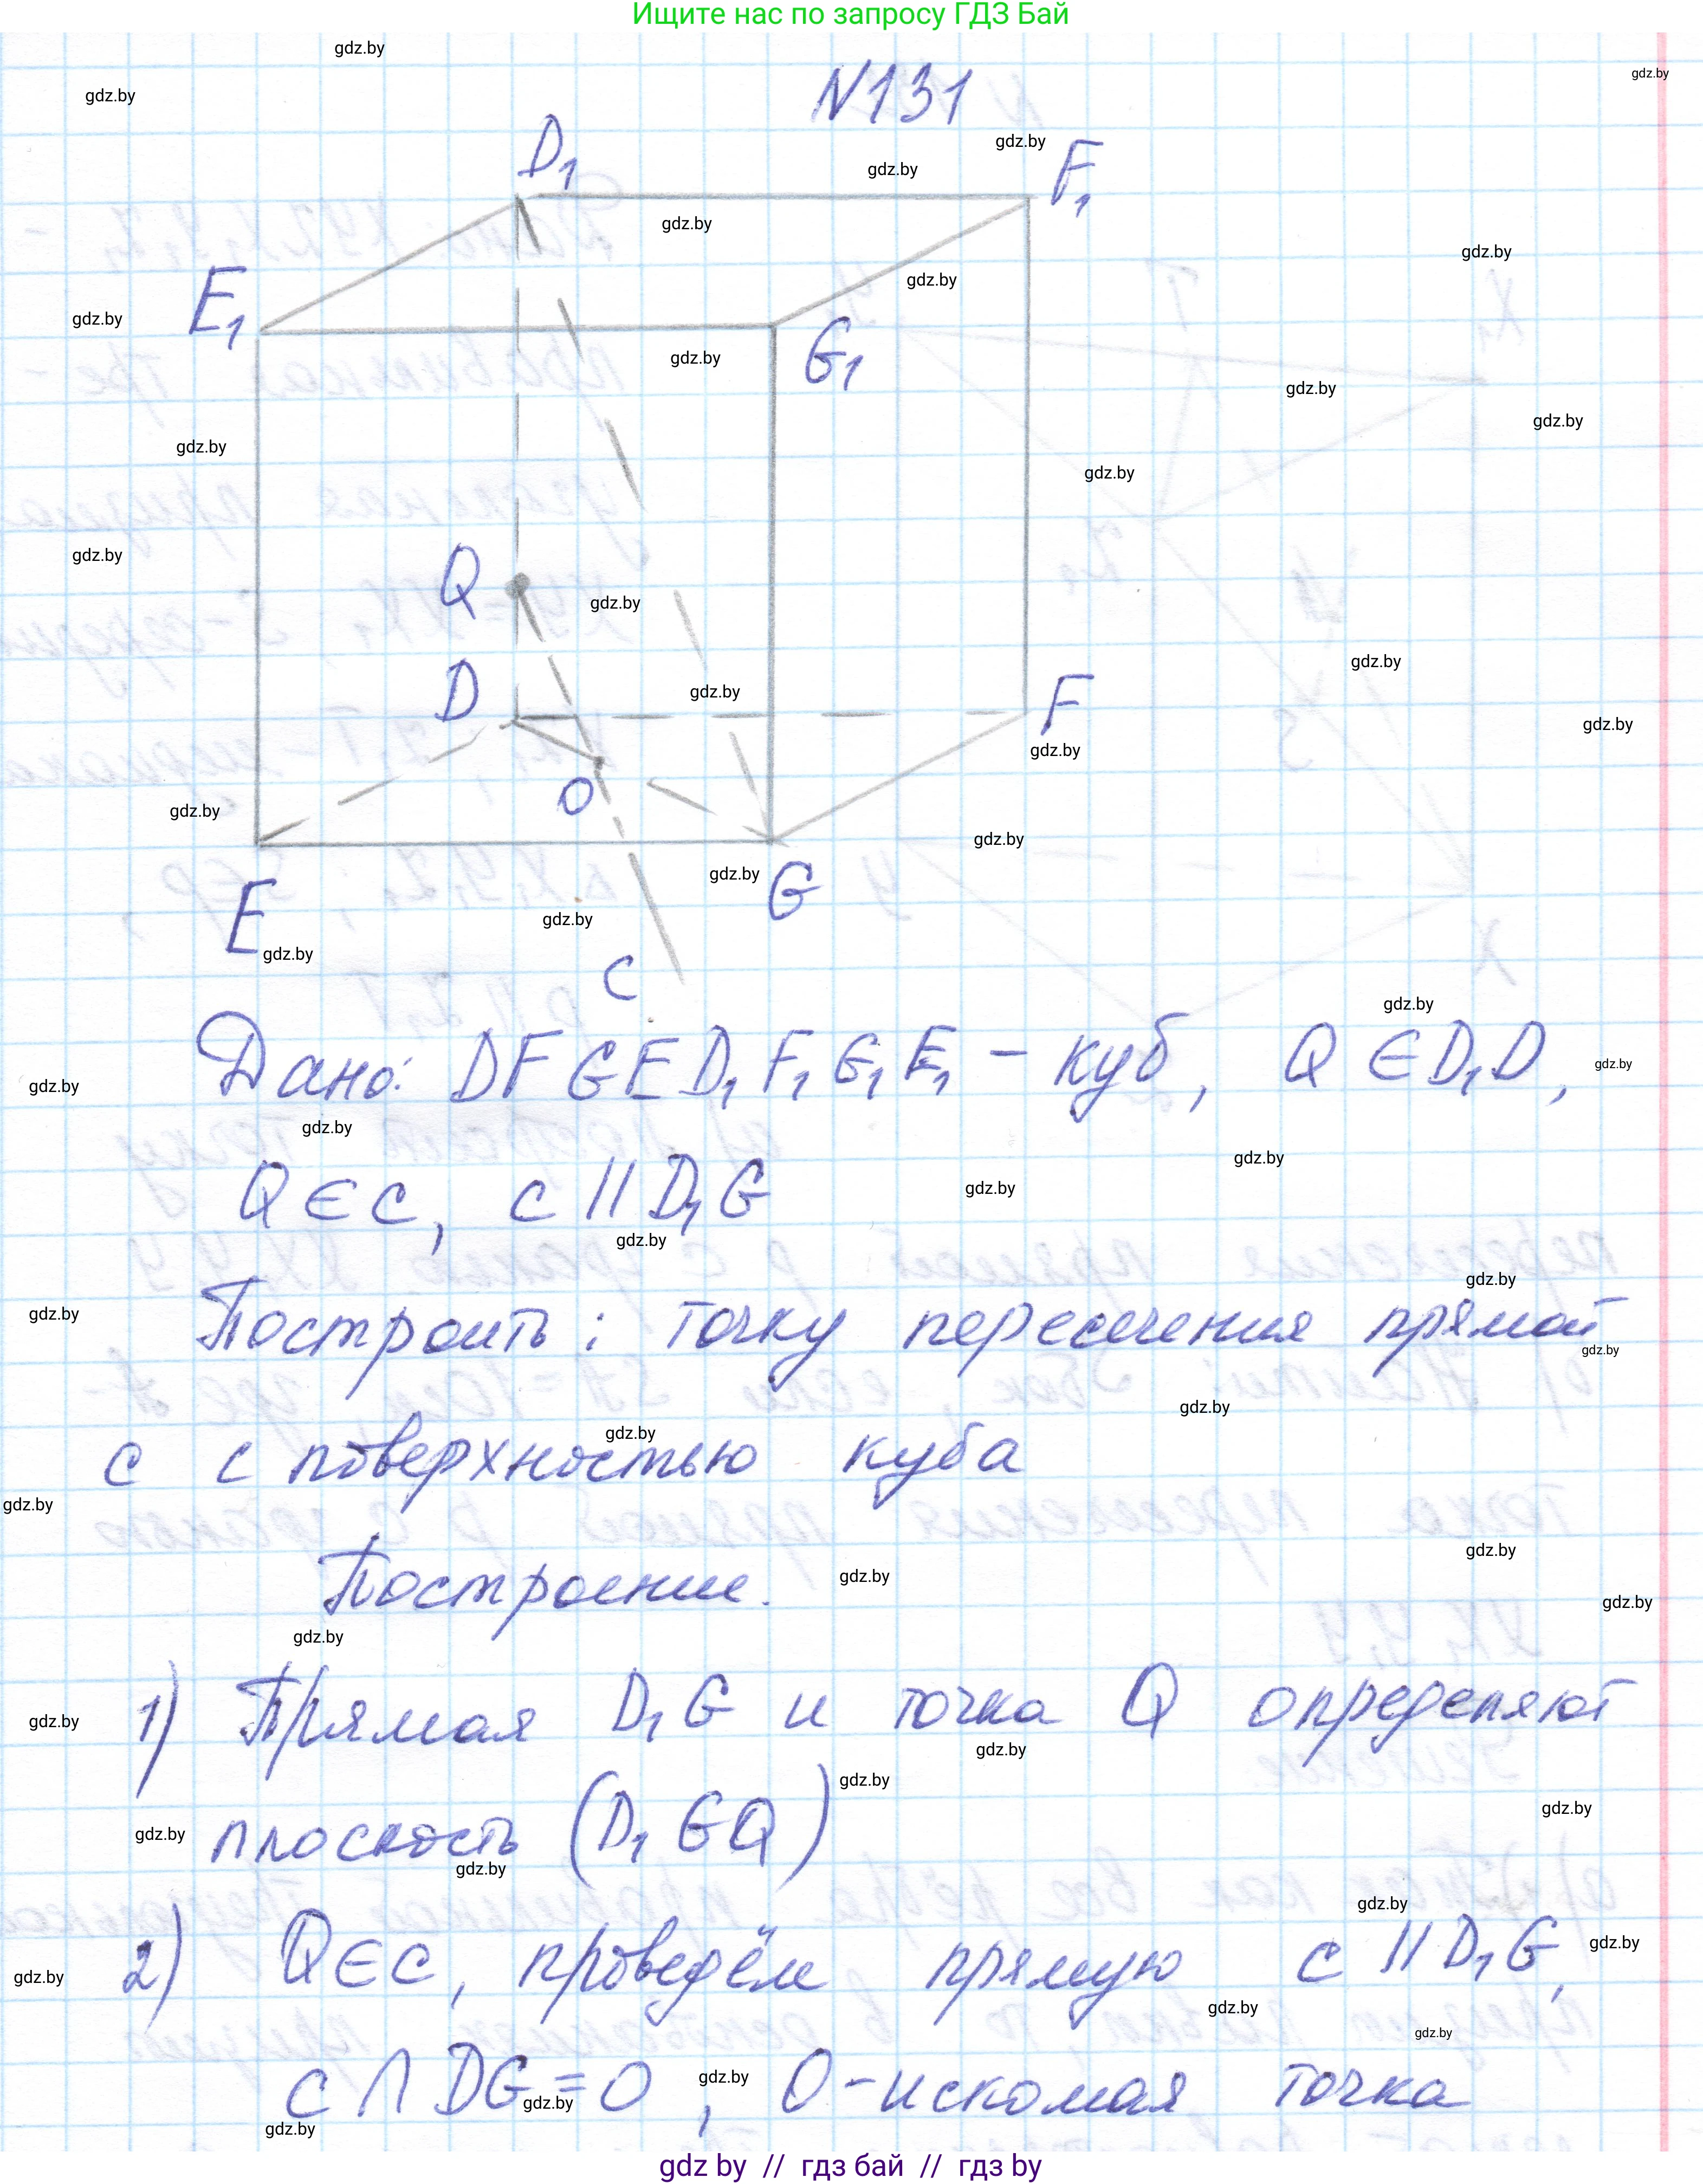 Ищите нас по запросу ГДЗ Бай
N131
D₁
F₁
E₁
G₁
Q
D
F
O
E
G
c
Дано: DFGED₁F₁G₁E₁ - куб, Q ∈ D₁D,
Q ∈ c, c || D₁G
Построить: точку пересечения прямой
c с поверхностью куба
Построение.
1) Прямая D₁G и точка Q определяют
плоскость (D₁GQ)
2) Q ∈ c, проведём прямую c || D₁G,
c ∩ DG = O, O - искомая точка
gdz by // гдз бай // гдз by
gdz.by